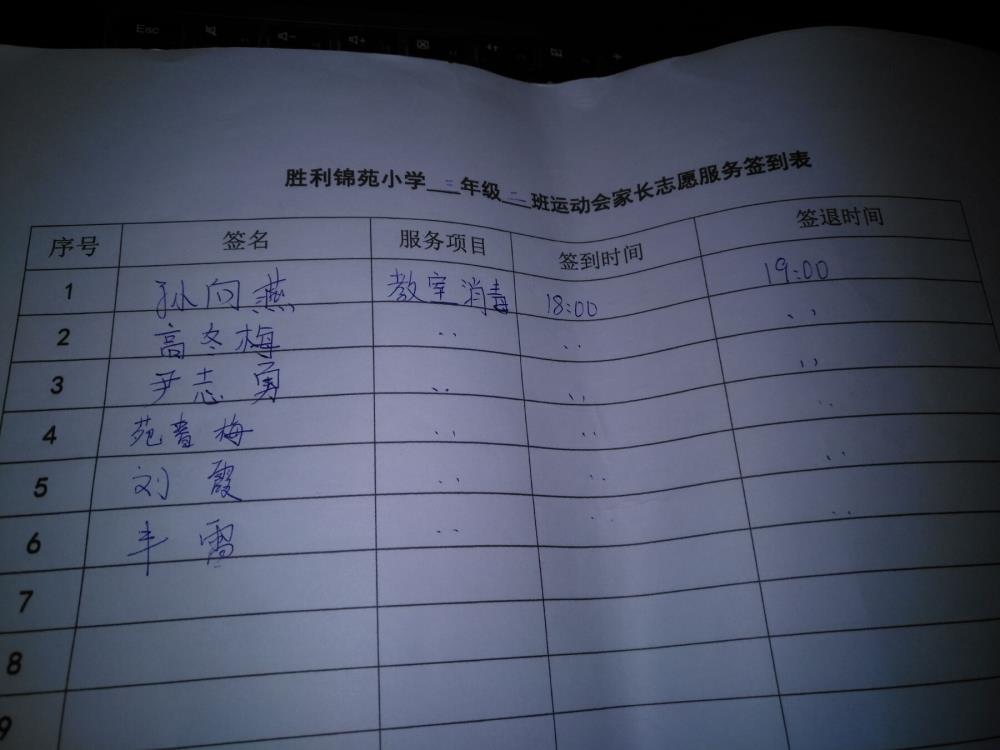 Esc
胜利锦苑小学 三 年级 二 班运动会家长志愿服务签到表
序号 签名 服务项目 签到时间 签退时间
1 孙向燕 教室消毒 18:00 19:00
2 高冬梅 ,, ,, ,,
3 尹志勇 ,, ,, ,,
4 苑春梅 ,, ,, ,,
5 刘霞 ,, ,, ,,
6 丰雪 ,, ,, ,,
7
8
9